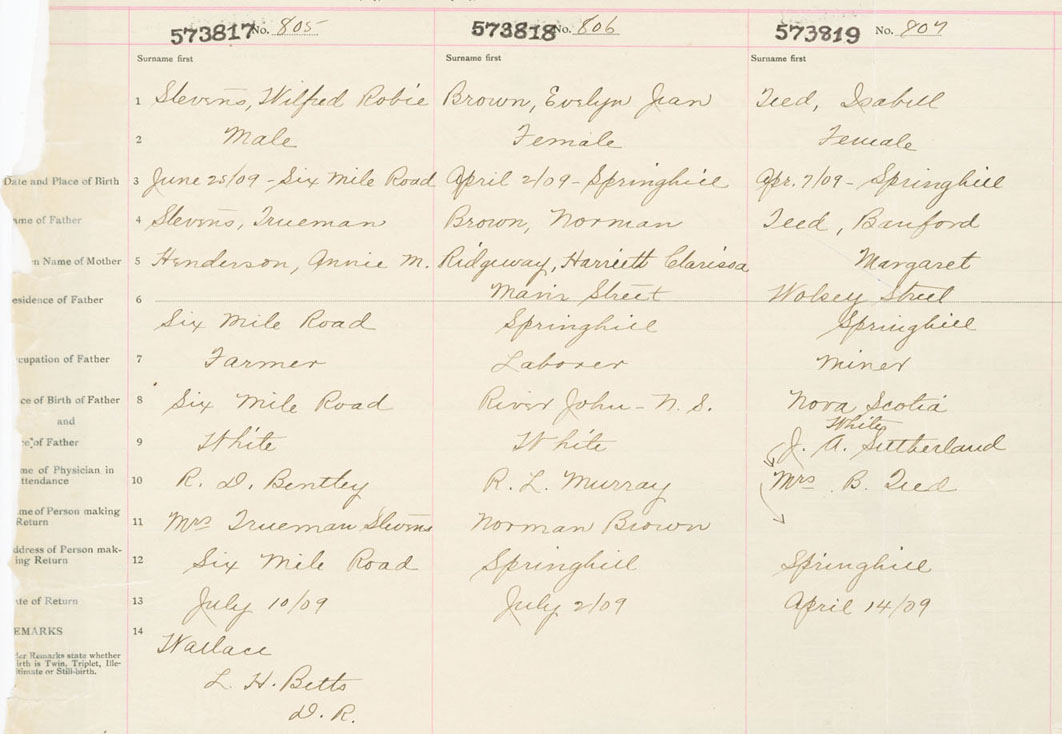 573817 No. 805 573818 No. 806 573819 No. 807
Surname first Surname first Surname first
1 Stevens, Wilfred Robie Brown, Evelyn Jean Teed, Isabell
2 Male Female Female
Date and Place of Birth 3 June 25/09 - Six Mile Road April 2/09 - Springhill Apr. 7/09 - Springhill
ame of Father 4 Stevens, Trueman Brown, Norman Teed, Banford
n Name of Mother 5 Henderson, Annie M. Ridgeway, Harriett Clarissa Margaret
Main Street Wolsey Street
esidence of Father 6
Six Mile Road Springhill Springhill
cupation of Father 7 Farmer Laborer Miner
ce of Birth of Father 8 Six Mile Road River John - N. S. Nova Scotia
and
White
ce of Father 9 White White J. A. Sutherland
me of Physician in
ttendance 10 R. D. Bentley R. L. Murray Mrs B. Teed
me of Person making
Return 11 Mrs Trueman Stevens Norman Brown
ddress of Person mak-
ing Return 12 Six Mile Road Springhill Springhill
te of Return 13 July 10/09 July 2/09 April 14/09
EMARKS 14 Wallace
der Remarks state whether
irth is Twin, Triplet, Ille-
itimate or Still-birth.
L. H. Betts
D. R.